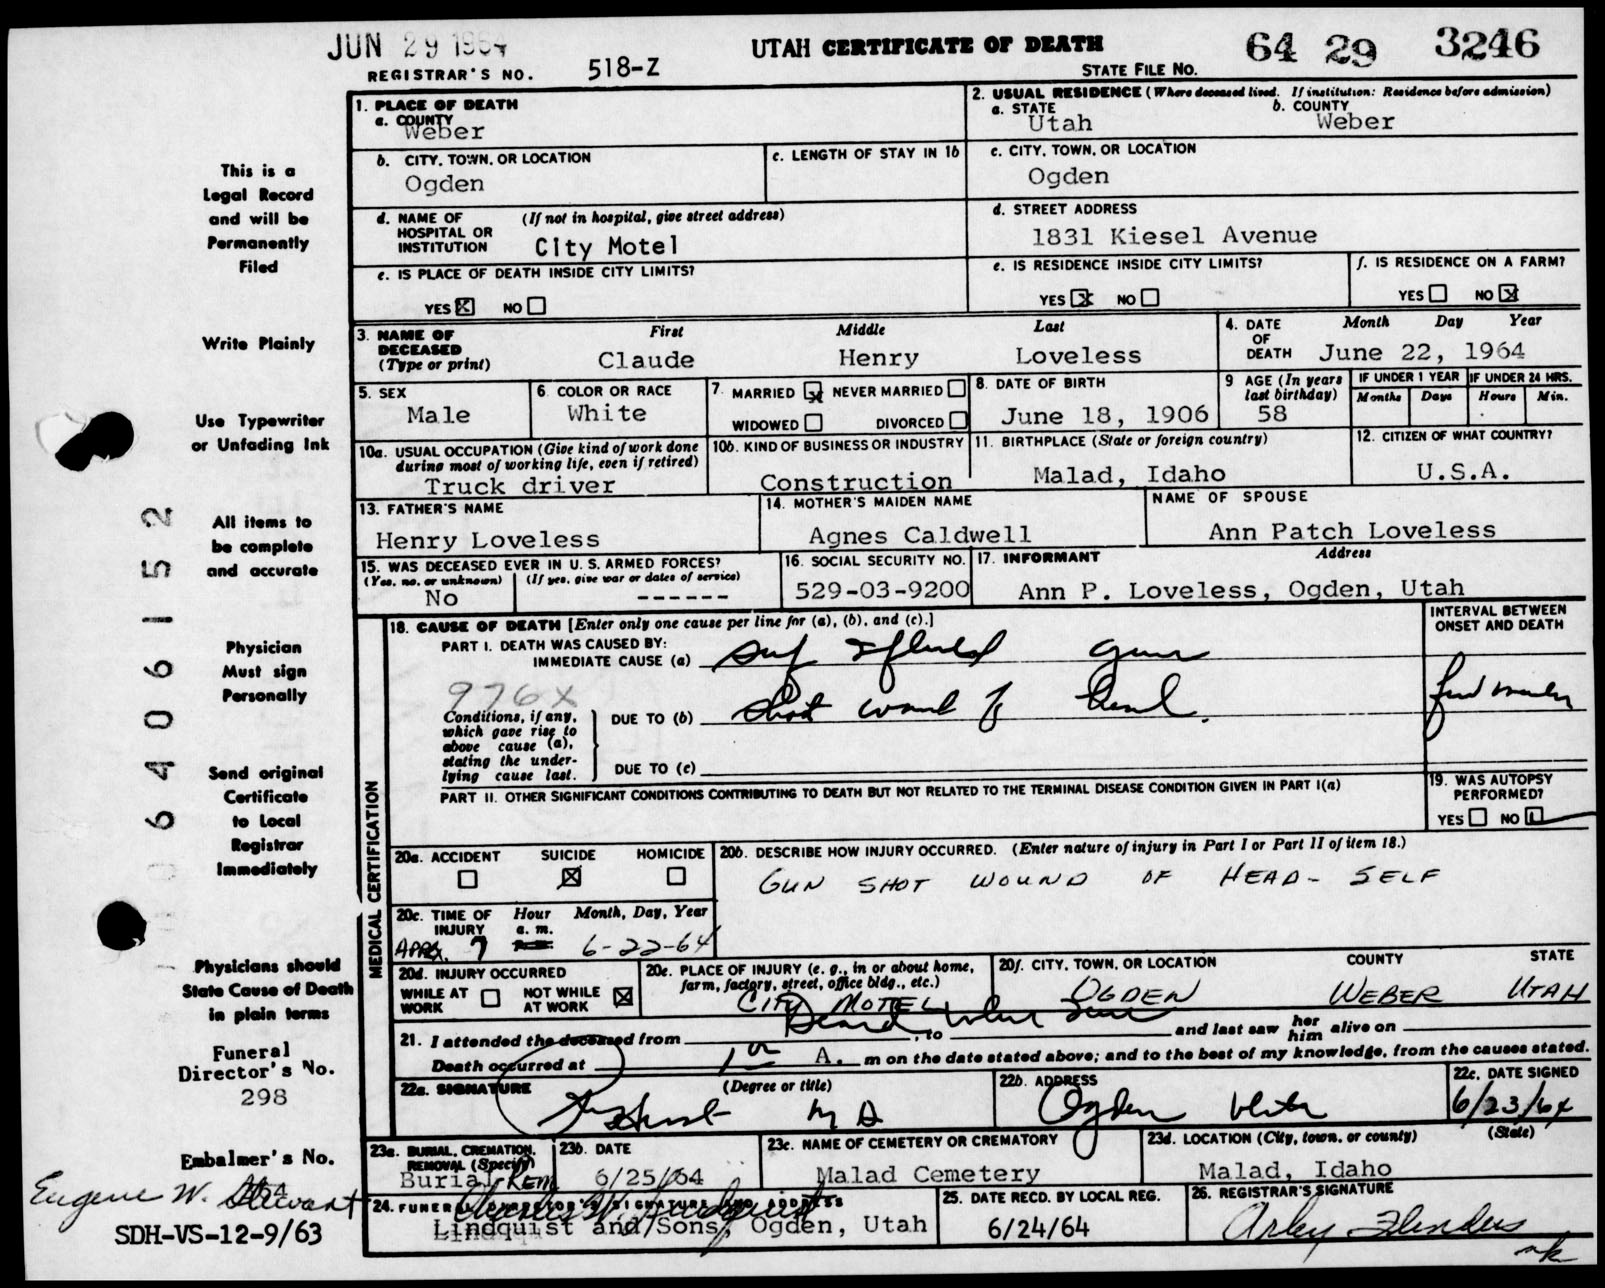 JUN 29 1964
UTAH CERTIFICATE OF DEATH
64 29 3246
REGISTRAR'S NO. 518-Z
STATE FILE NO.
1. PLACE OF DEATH
a. COUNTY
Weber
2. USUAL RESIDENCE (Where deceased lived. If institution: Residence before admission)
a. STATE
b. COUNTY
Utah
Weber
b. CITY, TOWN, OR LOCATION
Ogden
c. LENGTH OF STAY IN 1b
c. CITY, TOWN, OR LOCATION
Ogden
d. NAME OF HOSPITAL OR INSTITUTION
(If not in hospital, give street address)
City Motel
d. STREET ADDRESS
1831 Kiesel Avenue
e. IS PLACE OF DEATH INSIDE CITY LIMITS?
YES X NO
e. IS RESIDENCE INSIDE CITY LIMITS?
YES X NO
f. IS RESIDENCE ON A FARM?
YES NO X
3. NAME OF
DECEASED
(Type or print)
First Middle Last
Claude Henry Loveless
4. DATE
OF
DEATH
Month Day Year
June 22, 1964
5. SEX
Male
6. COLOR OR RACE
White
7. MARRIED X NEVER MARRIED
WIDOWED DIVORCED
8. DATE OF BIRTH
June 18, 1906
9 AGE (In years
last birthday)
58
IF UNDER 1 YEAR
Months Days
IF UNDER 24 HRS.
Hours Min.
10a. USUAL OCCUPATION (Give kind of work done
during most of working life, even if retired)
Truck driver
10b. KIND OF BUSINESS OR INDUSTRY
Construction
11. BIRTHPLACE (State or foreign country)
Malad, Idaho
12. CITIZEN OF WHAT COUNTRY?
U.S.A.
13. FATHER'S NAME
Henry Loveless
14. MOTHER'S MAIDEN NAME
Agnes Caldwell
NAME OF SPOUSE
Ann Patch Loveless
15. WAS DECEASED EVER IN U. S. ARMED FORCES?
(Yes, no, or unknown) (If yes, give war or dates of service)
No ------
16. SOCIAL SECURITY NO.
529-03-9200
17. INFORMANT Address
Ann P. Loveless, Ogden, Utah
MEDICAL CERTIFICATION
18. CAUSE OF DEATH [Enter only one cause per line for (a), (b), and (c).]
INTERVAL BETWEEN
ONSET AND DEATH
PART I. DEATH WAS CAUSED BY:
IMMEDIATE CAUSE (a) gun
976X
Conditions, if any,
which gave rise to
above cause (a),
stating the under-
lying cause last.
DUE TO (b) shot wound of head.
DUE TO (c)
PART II. OTHER SIGNIFICANT CONDITIONS CONTRIBUTING TO DEATH BUT NOT RELATED TO THE TERMINAL DISEASE CONDITION GIVEN IN PART I(a)
19. WAS AUTOPSY
PERFORMED?
YES NO
20a. ACCIDENT SUICIDE HOMICIDE
X
20b. DESCRIBE HOW INJURY OCCURRED. (Enter nature of injury in Part I or Part II of item 18.)
GUN SHOT WOUND OF HEAD - SELF
20c. TIME OF
INJURY
Hour Month, Day, Year
a. m.
APPX. 7 6-22-64
20d. INJURY OCCURRED
WHILE AT
WORK
NOT WHILE
AT WORK X
20e. PLACE OF INJURY (e. g., in or about home,
farm, factory, street, office bldg., etc.)
CITY MOTEL
20f. CITY, TOWN, OR LOCATION COUNTY STATE
OGDEN WEBER UTAH
21. I attended the deceased from Dead when seen, to and last saw her him alive on
Death occurred at A. m on the date stated above; and to the best of my knowledge, from the causes stated.
22a. SIGNATURE (Degree or title)
M D
22b. ADDRESS
Ogden Utah
22c. DATE SIGNED
6/23/64
23a. BURIAL, CREMATION,
REMOVAL (Specify)
Burial Rem
23b. DATE
6/25/64
23c. NAME OF CEMETERY OR CREMATORY
Malad Cemetery
23d. LOCATION (City, town, or county) (State)
Malad, Idaho
24. FUNERAL DIRECTOR'S SIGNATURE AND ADDRESS
Lindquist and Sons, Ogden, Utah
25. DATE RECD. BY LOCAL REG.
6/24/64
26. REGISTRAR'S SIGNATURE
Arley Flinders
This is a
Legal Record
and will be
Permanently
Filed
Write Plainly
Use Typewriter
or Unfading Ink
All items to
be complete
and accurate
Physician
Must sign
Personally
Send original
Certificate
to Local
Registrar
Immediately
Physicians should
State Cause of Death
in plain terms
Funeral
Director's No.
298
Embalmer's No.
Eugene W. Stewart
SDH-VS-12-9/63